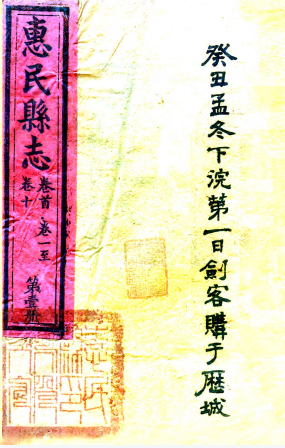 癸丑孟冬下浣第一日劍客購于歷城
惠民縣志
卷首 卷一至
卷十
第壹冊